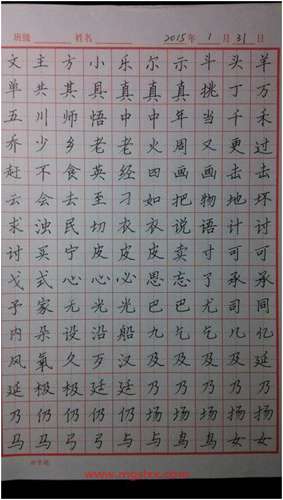 班级 姓名 2015年 1月 31日
文主方小乐尔示斗头羊
单共其具真真真挑丁万
五川师悟中中年当千禾
乔少乡老老火周又更过
赶不食英经四画画击击
云会去至刁如把物地坏
求浊民切衣衣说语计讨
讨买宁皮皮皮卖寸可可
戈式心心必思忘了承承
予家无光光巴巴尤司同
内朵设沿船九乞乞几亿
风氧久万汉及及及及延
延极极廷廷乃乃乃乃乃
乃仍仍仍仍场场扬扬扬
马马弓弓与与鸟鸟女女
www.mgslxx.com